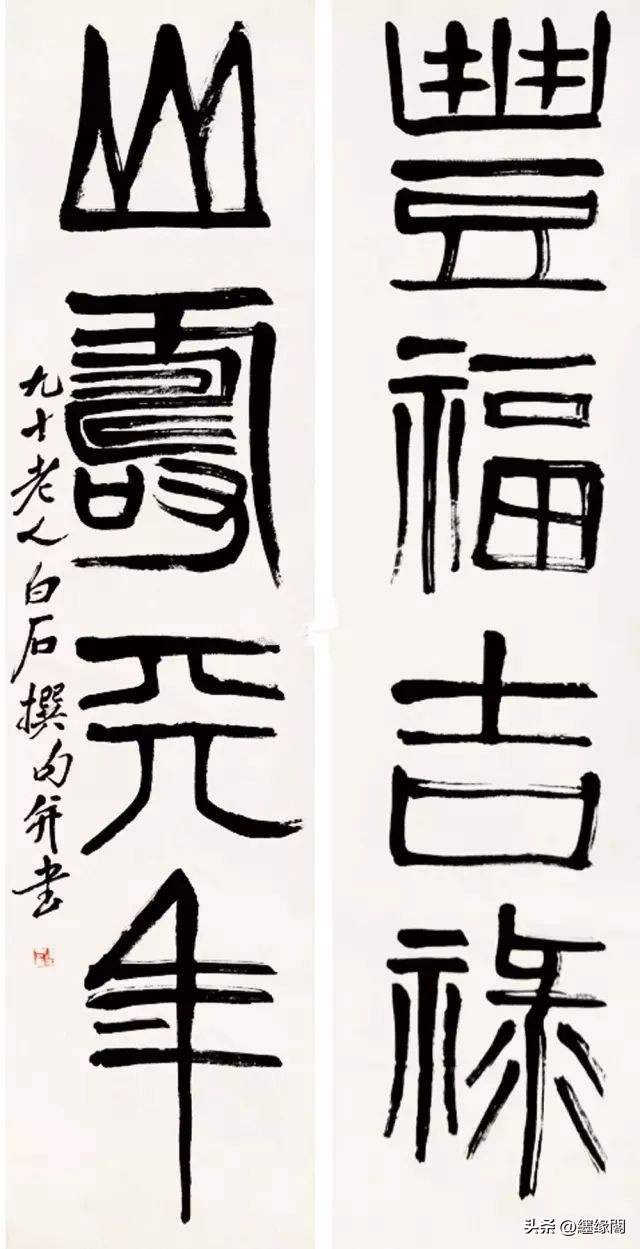 豐福吉祿
山壽年
九十老人白石撰句并書
头条 @纏缘閣